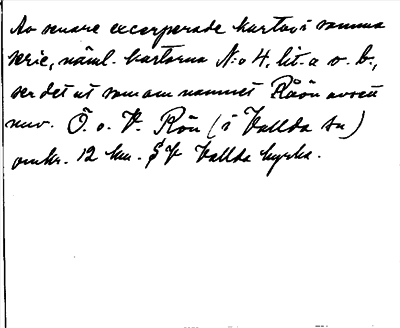 Av senare excerperade kartor i samma
serie, näml. kartorna N:o 4, lit. a o. b.,
ser det ut som om namnet Råön avsett
nuv. Ö. o. V. Rön (i Vallda sn)
omkr. 12 km. SV Vallda kyrka.